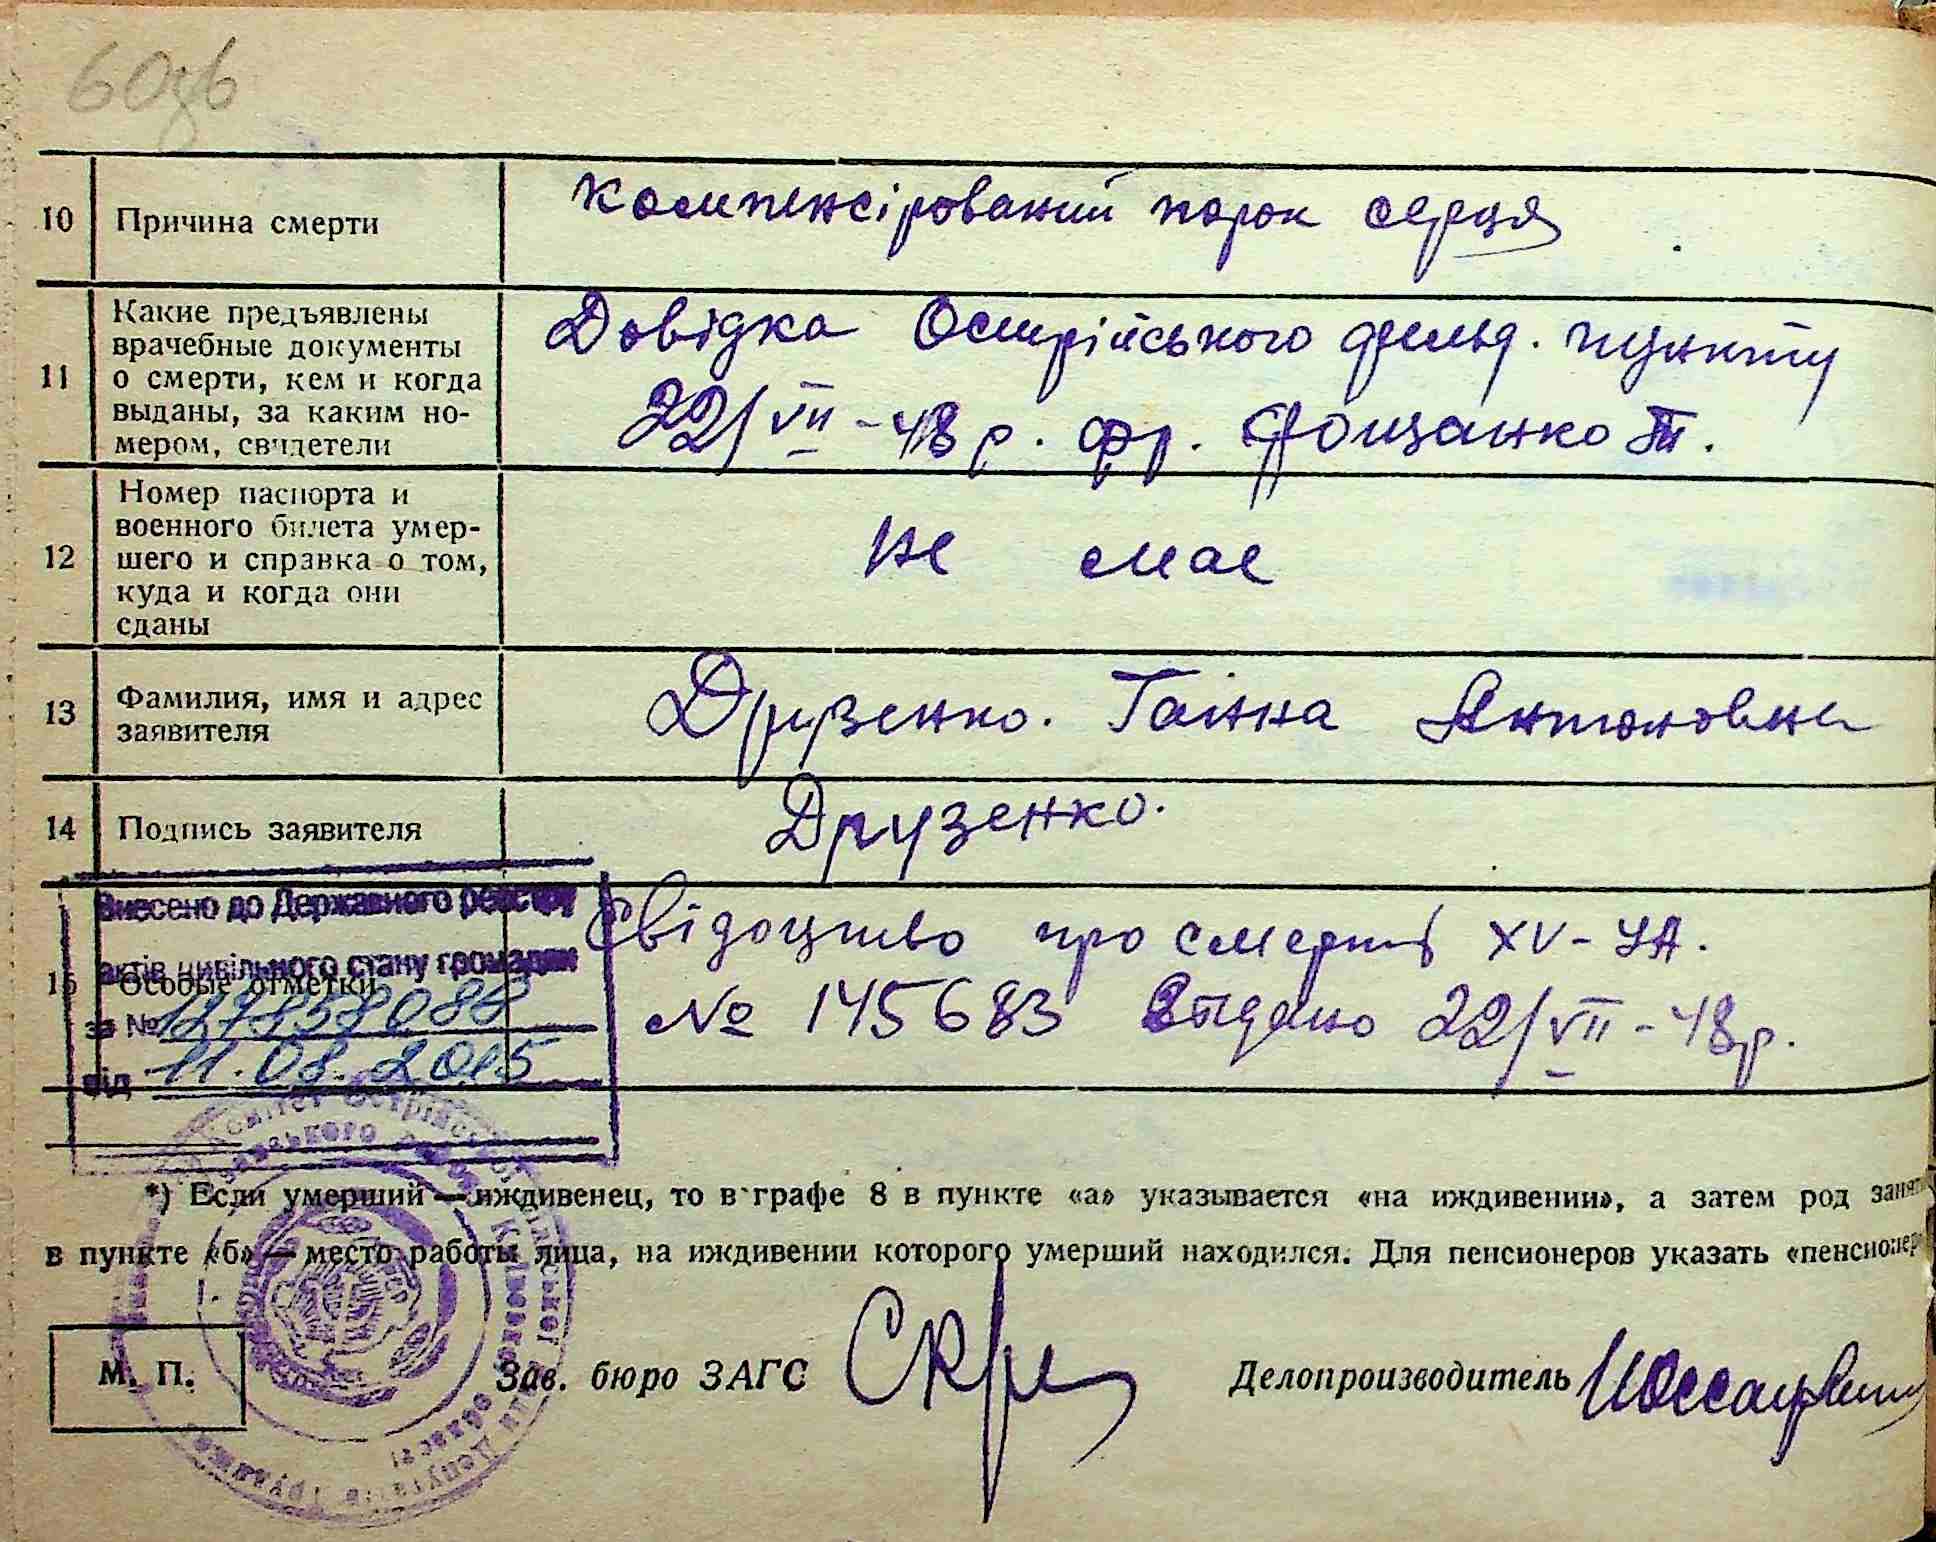 60зв
10 Причина смерти
компенсірований порок серця
11 Какие предъявлены
врачебные документы
о смерти, кем и когда
выданы, за каким но-
мером, свидетели
Довідка Острійського фельд. пункту
22/VII-48 р. фр.
12 Номер паспорта и
военного билета умер-
шего и справка о том,
куда и когда они
сданы
не має
13 Фамилия, имя и адрес
заявителя
Друзенко. Ганна Антоновна
14 Подпись заявителя
Друзенко.
15 Особые отметки
Внесено до Державного реєстру
актів цивільного стану громадян
за №
від 11.08.2015
Свідоцтво про смерть XV-УА.
№ 145683 Видано 22/VII-48р.
*) Если умерший — иждивенец, то в графе 8 в пункте «а» указывается «на иждивении», а затем род
в пункте «б» — место работы лица, на иждивении которого умерший находился. Для пенсионеров указать
М. П.
Зав. бюро ЗАГС
Делопроизводитель